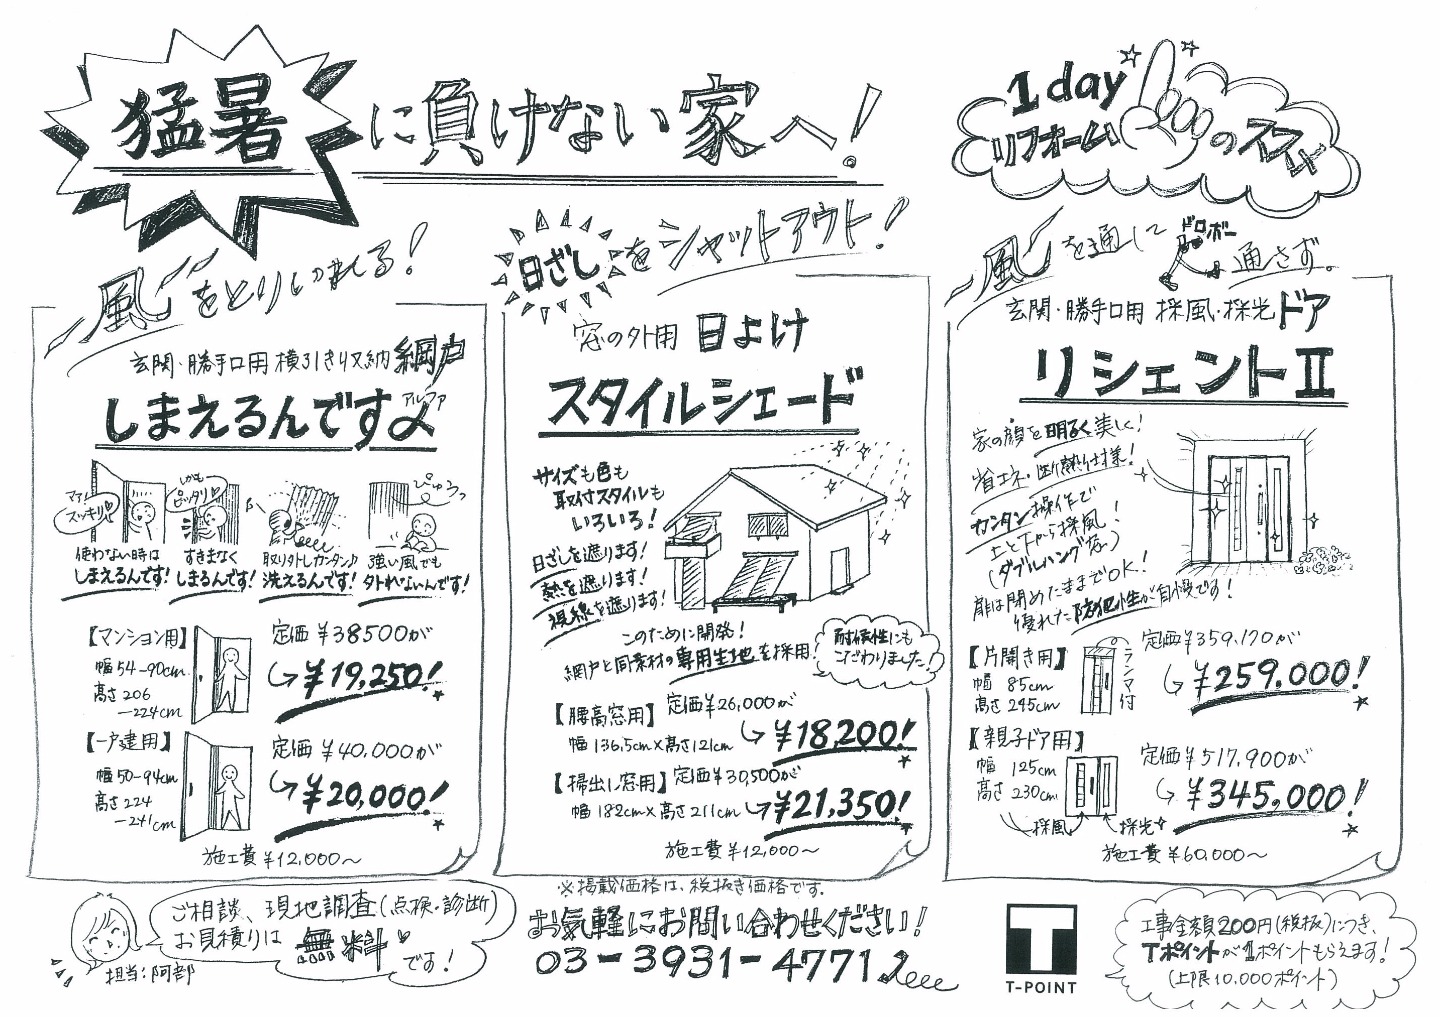 猛暑に負けない家へ!
1day
リフォームのススメ
風をとりいれる!
玄関・勝手口用 横引き収納 網戸
しまえるんですα
アルファ
マァ!
スッキリ
使わない時は
しまえるんです!
しかも
ピッタリ
すきまなく
しまるんです!
取り外しカンタン♪
洗えるんです!
ぴゅうっ
強い風でも
外れないんです!
【マンション用】
幅54-90cm
高さ206
-224cm
定価¥38500が
¥19,250!
【一戸建用】
幅50-94cm
高さ224
-241cm
定価¥40,000が
¥20,000!
施工費¥12,000〜
日ざしをシャットアウト!
窓の外用 日よけ
スタイルシェード
サイズも色も
取付スタイルも
いろいろ!
日ざしを遮ります!
熱を遮ります!
視線を遮ります!
このために開発!
網戸と同素材の専用生地を採用!
耐候性にも
こだわりました!
【腰高窓用】定価¥26,000が
幅136.5cm×高さ121cm
¥18,200!
【掃出し窓用】定価¥30,500が
幅182cm×高さ211cm
¥21,350!
施工費¥12,000〜
風を通してドロボー通さず。
玄関・勝手口用 採風・採光ドア
リシェントⅡ
家の顔を明るく美しく!
省エネ・断熱仕様!
カンタン操作で
上と下から採風!
(ダブルハング窓)
扉は閉めたままでOK!
優れた防犯性が自慢です!
【片開き用】
幅 85cm
高さ245cm
ランマ付
定価¥359,170が
¥259,000!
【親子ドア用】
幅 125cm
高さ230cm
採風
採光
定価¥517,900が
¥345,000!
施工費¥60,000〜
担当:阿部
ご相談、現地調査(点検・診断)
お見積りは 無料 です!
※掲載価格は、税抜き価格です。
お気軽にお問い合わせください!
03-3931-4771
T
T-POINT
工事金額200円(税抜)につき、
Tポイントが1ポイントもらえます!
(上限10,000ポイント)